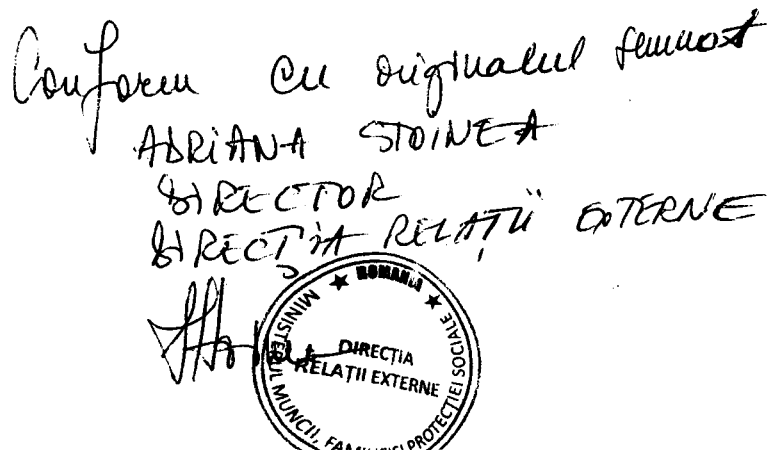 Conform cu originalul semnat
ADRIANA STOINEA
DIRECTOR
DIRECȚIA RELAȚII EXTERNE
★ ROMANIA ★
MINISTERUL MUNCII, FAMILIEI ȘI PROTECȚIEI SOCIALE
DIRECȚIA
RELAȚII EXTERNE